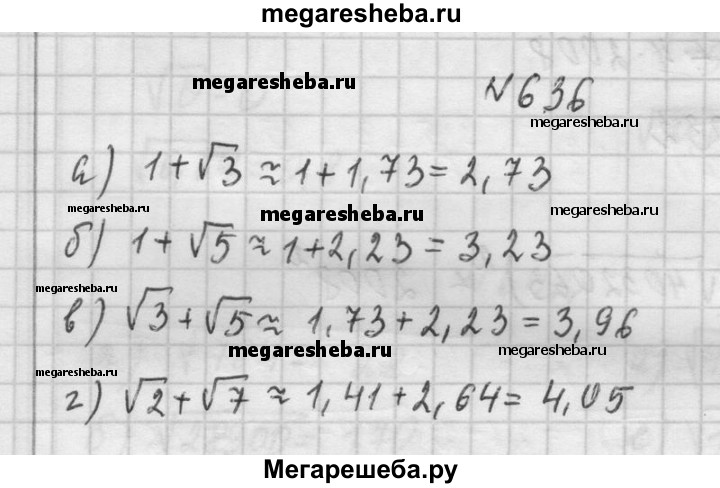 megaresheba.ru
megaresheba.ru
№ 636
megaresheba.ru
а) 1+√3 ≈ 1+1,73=2,73
megaresheba.ru
megaresheba.ru
megaresheba.ru
б) 1+√5 ≈ 1+2,23=3,23
megaresheba.ru
в) √3+√5 ≈ 1,73+2,23=3,96
megaresheba.ru
megaresheba.ru
megaresheba.ru
г) √2+√7 ≈ 1,41+2,64=4,05
Мегарешеба.ру